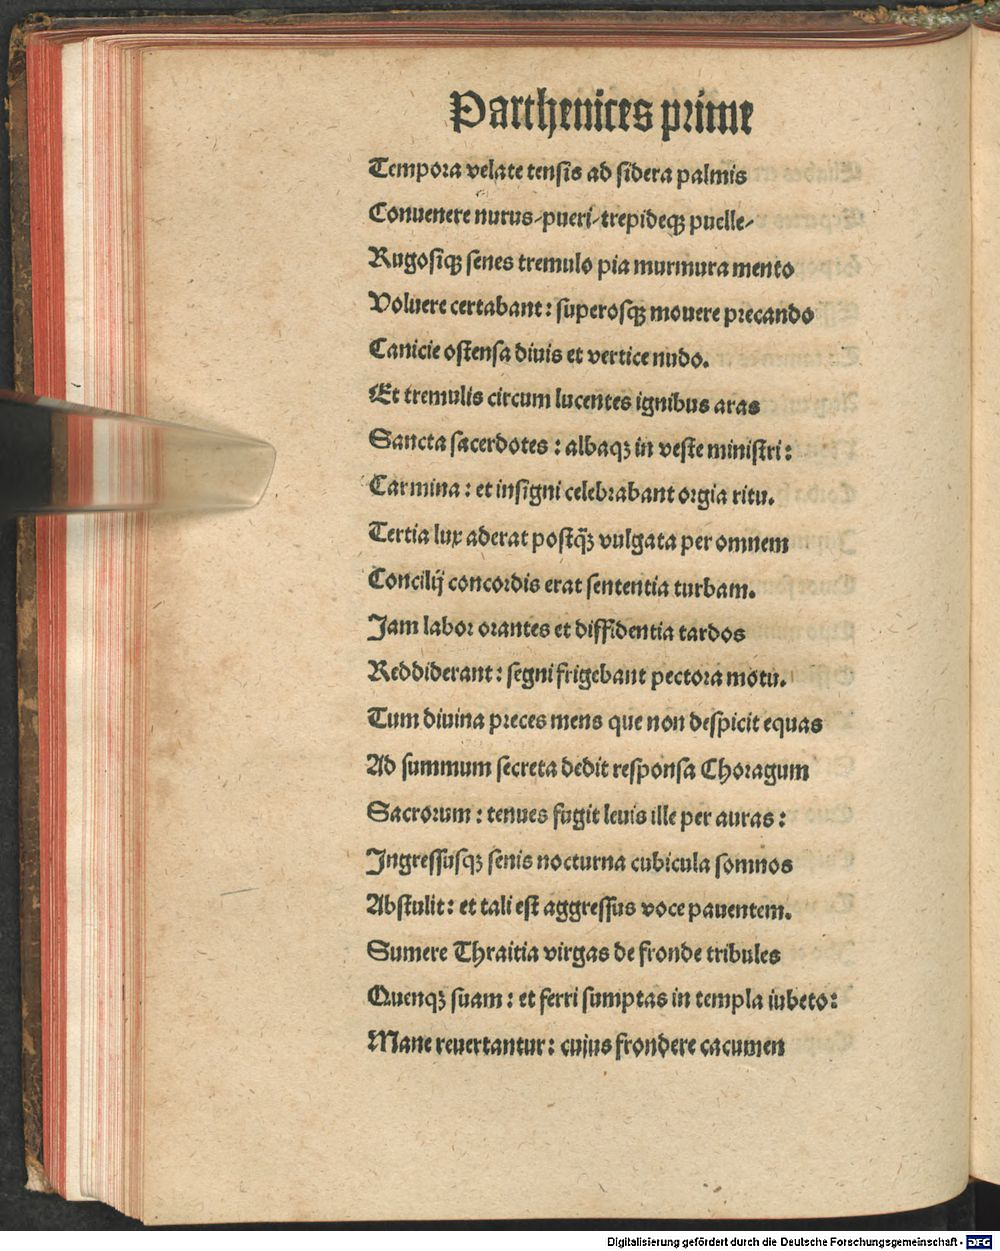 Parthenices prime
Tempora velate tensis ad sidera palmis
Conuenere nurus/pueri/trepideqꝫ puelle/
Rugosiqꝫ senes tremulo pia murmura mento
Voluere certabant: superosqꝫ mouere precando
Canicie ostensa diuis et vertice nudo.
Et tremulis circum lucentes ignibus aras
Sancta sacerdotes: albaqꝫ in veste ministri:
Carmina: et insigni celebrabant orgia ritu.
Tertia lux aderat postq̃ꝫ vulgata per omnem
Concilij concordis erat sententia turbam.
Jam labor orantes et diffidentia tardos
Reddiderant: segni frigebant pectora motu.
Tum diuina preces mens que non despicit equas
Ad summum secreta dedit responsa Choragum
Sacrorum: tenues fugit leuis ille per auras:
Ingressusqꝫ senis nocturna cubicula somnos
Abstulit: et tali est aggressus voce pauentem.
Sumere Thraitia virgas de fronde tribules
Quenqꝫ suam: et ferri sumptas in templa iubeto:
Mane reuertantur: cuius frondere cacumen
Digitalisierung gefördert durch die Deutsche Forschungsgemeinschaft - DFG